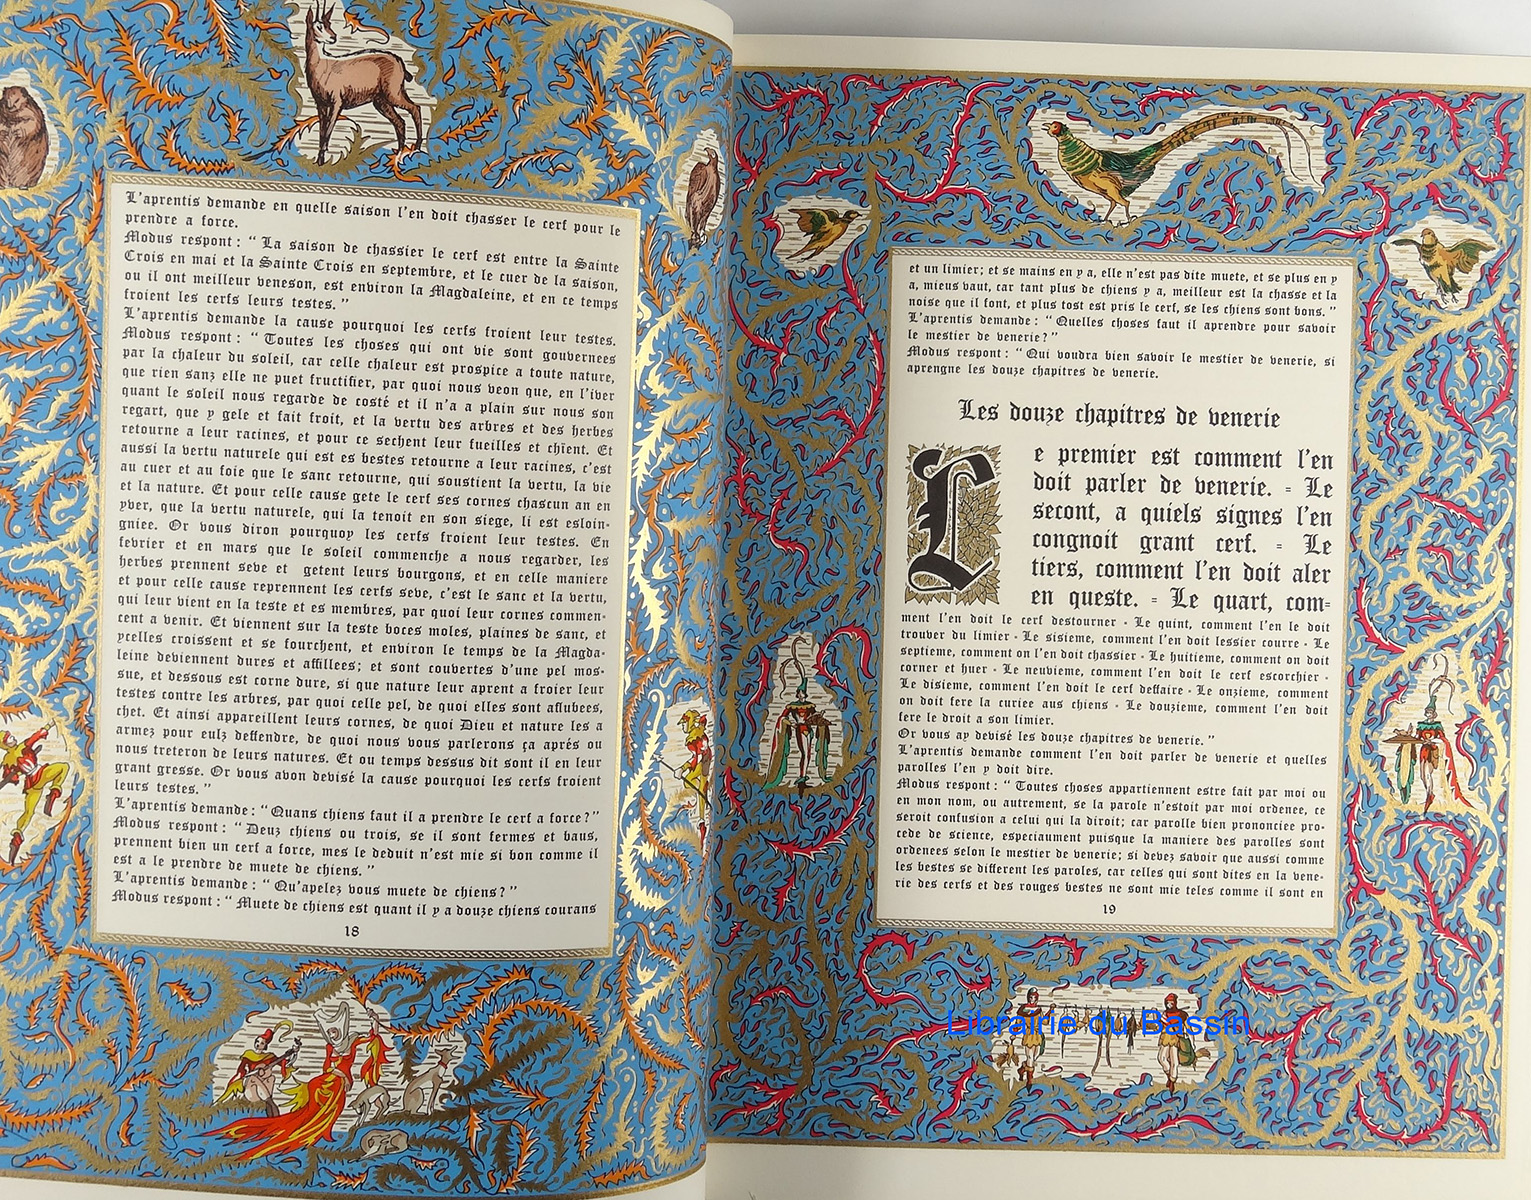 L'aprentis demande en quelle saison l'en doit chasser le cerf pour le
prendre a force.
Modus respont : " La saison de chassier le cerf est entre la Sainte
Crois en mai et la Sainte Crois en septembre, et le cuer de la saison,
ou il ont meilleur veneson, est environ la Magdaleine, et en ce temps
froient les cerfs leurs testes. "
L'aprentis demande la cause pourquoi les cerfs froient leur testes.
Modus respont : " Toutes les choses qui ont vie sont gouvernees
par la chaleur du soleil, car celle chaleur est prospice a toute nature,
que rien sanz elle ne puet fructifier, par quoi nous veon que, en l'iver
quant le soleil nous regarde de costé et il n'a a plain sur nous son
regart, que y gele et fait froit, et la vertu des arbres et des herbes
retourne a leur racines, et pour ce sechent leur fueilles et chïent. Et
aussi la vertu naturele qui est es bestes retourne a leur racines, c'est
au cuer et au foie que le sanc retourne, qui soustient la vertu, la vie
et la nature. Et pour celle cause gete le cerf ses cornes chascun an en
yver, que la vertu naturele, qui la tenoit en son siege, li est esloin-
gniee. Or vous diron pourquoy les cerfs froient leur testes. En
febrier et en mars que le soleil commenche a nous regarder, les
herbes prennent sebe et getent leurs bourgons, et en celle maniere
et pour celle cause reprennent les cerfs seve, c'est le sanc et la vertu,
qui leur vient en la teste et es membres, par quoi leur cornes commen-
cent a venir. Et viennent sur la teste boces moles, plaines de sanc, et
ycelles croissent et se fourchent, et environ le temps de la Magda-
leine deviennent dures et affillees; et sont couvertes d'une pel mos-
sue, et dessous est corne dure, si que nature leur aprent a froier leur
testes contre les arbres, par quoi celle pel, de quoi elles sont aflubees,
chet. Et ainsi appareillent leurs cornes, de quoi Dieu et nature les a
armez pour eulz deffendre, de quoi nous vous parlerons ça aprés ou
nous treteron de leurs natures. Et ou temps dessus dit sont il en leur
grant gresse. Or vous avon devisé la cause pourquoi les cerfs froient
leurs testes. "
L'aprentis demande : " Quans chiens faut il a prendre le cerf a force ? "
Modus respont : " Deuz chiens ou trois, se il sont fermes et baus,
prennent bien un cerf a force, mes le deduit n'est mie si bon comme il
est a le prendre de muete de chiens. "
L'aprentis demande : " Qu'apelez vous muete de chiens ? "
Modus respont : " Muete de chiens est quant il y a douze chiens courans
18
et un limier; et se mains en y a, elle n'est pas dite muete, et se plus en y
a, mieus vaut, car tant plus de chiens y a, meilleur est la chasse et la
noise que il font, et plus tost est pris le cerf, se les chiens sont bons. "
L'aprentis demande : " Quelles choses faut il aprendre pour savoir
le mestier de venerie ? "
Modus respont : " Qui voudra bien savoir le mestier de venerie, si
aprengne les douze chapitres de venerie.
Les douze chapitres de venerie
Le premier est comment l'en
doit parler de venerie. = Le
secont, a quiels signes l'en
congnoit grant cerf. = Le
tiers, comment l'en doit aler
en queste. = Le quart, com=
ment l'en doit le cerf destourner - Le quint, comment l'en le doit
trouber du limier - Le sisieme, comment l'en doit lessier courre - Le
septieme, comment on l'en doit chassier - Le huitieme, comment on doit
corner et huer - Le neubieme, comment l'en doit le cerf escorchier -
Le disieme, comment l'en doit le cerf deffaire - Le onzieme, comment
on doit fere la curiee aus chiens - Le douzieme, comment l'en doit
fere le droit a son limier.
Or vous ay devisé les douze chapitres de venerie. "
L'aprentis demande comment l'en doit parler de venerie et quelles
parolles l'en y doit dire.
Modus respont : " Toutes choses appartiennent estre fait par moi ou
en mon nom, ou autrement, se la parole n'estoit par moi ordenee, ce
seroit confusion a celui qui la diroit; car parolle bien prononciee pro-
cede de science, especiaument puisque la maniere des parolles sont
ordenees selon le mestier de venerie; si devez savoir que aussi comme
les bestes se different les paroles, car celles qui sont dites en la vene-
rie des cerfs et des rouges bestes ne sont mie teles comme il sont en
19
Librairie du Bassin